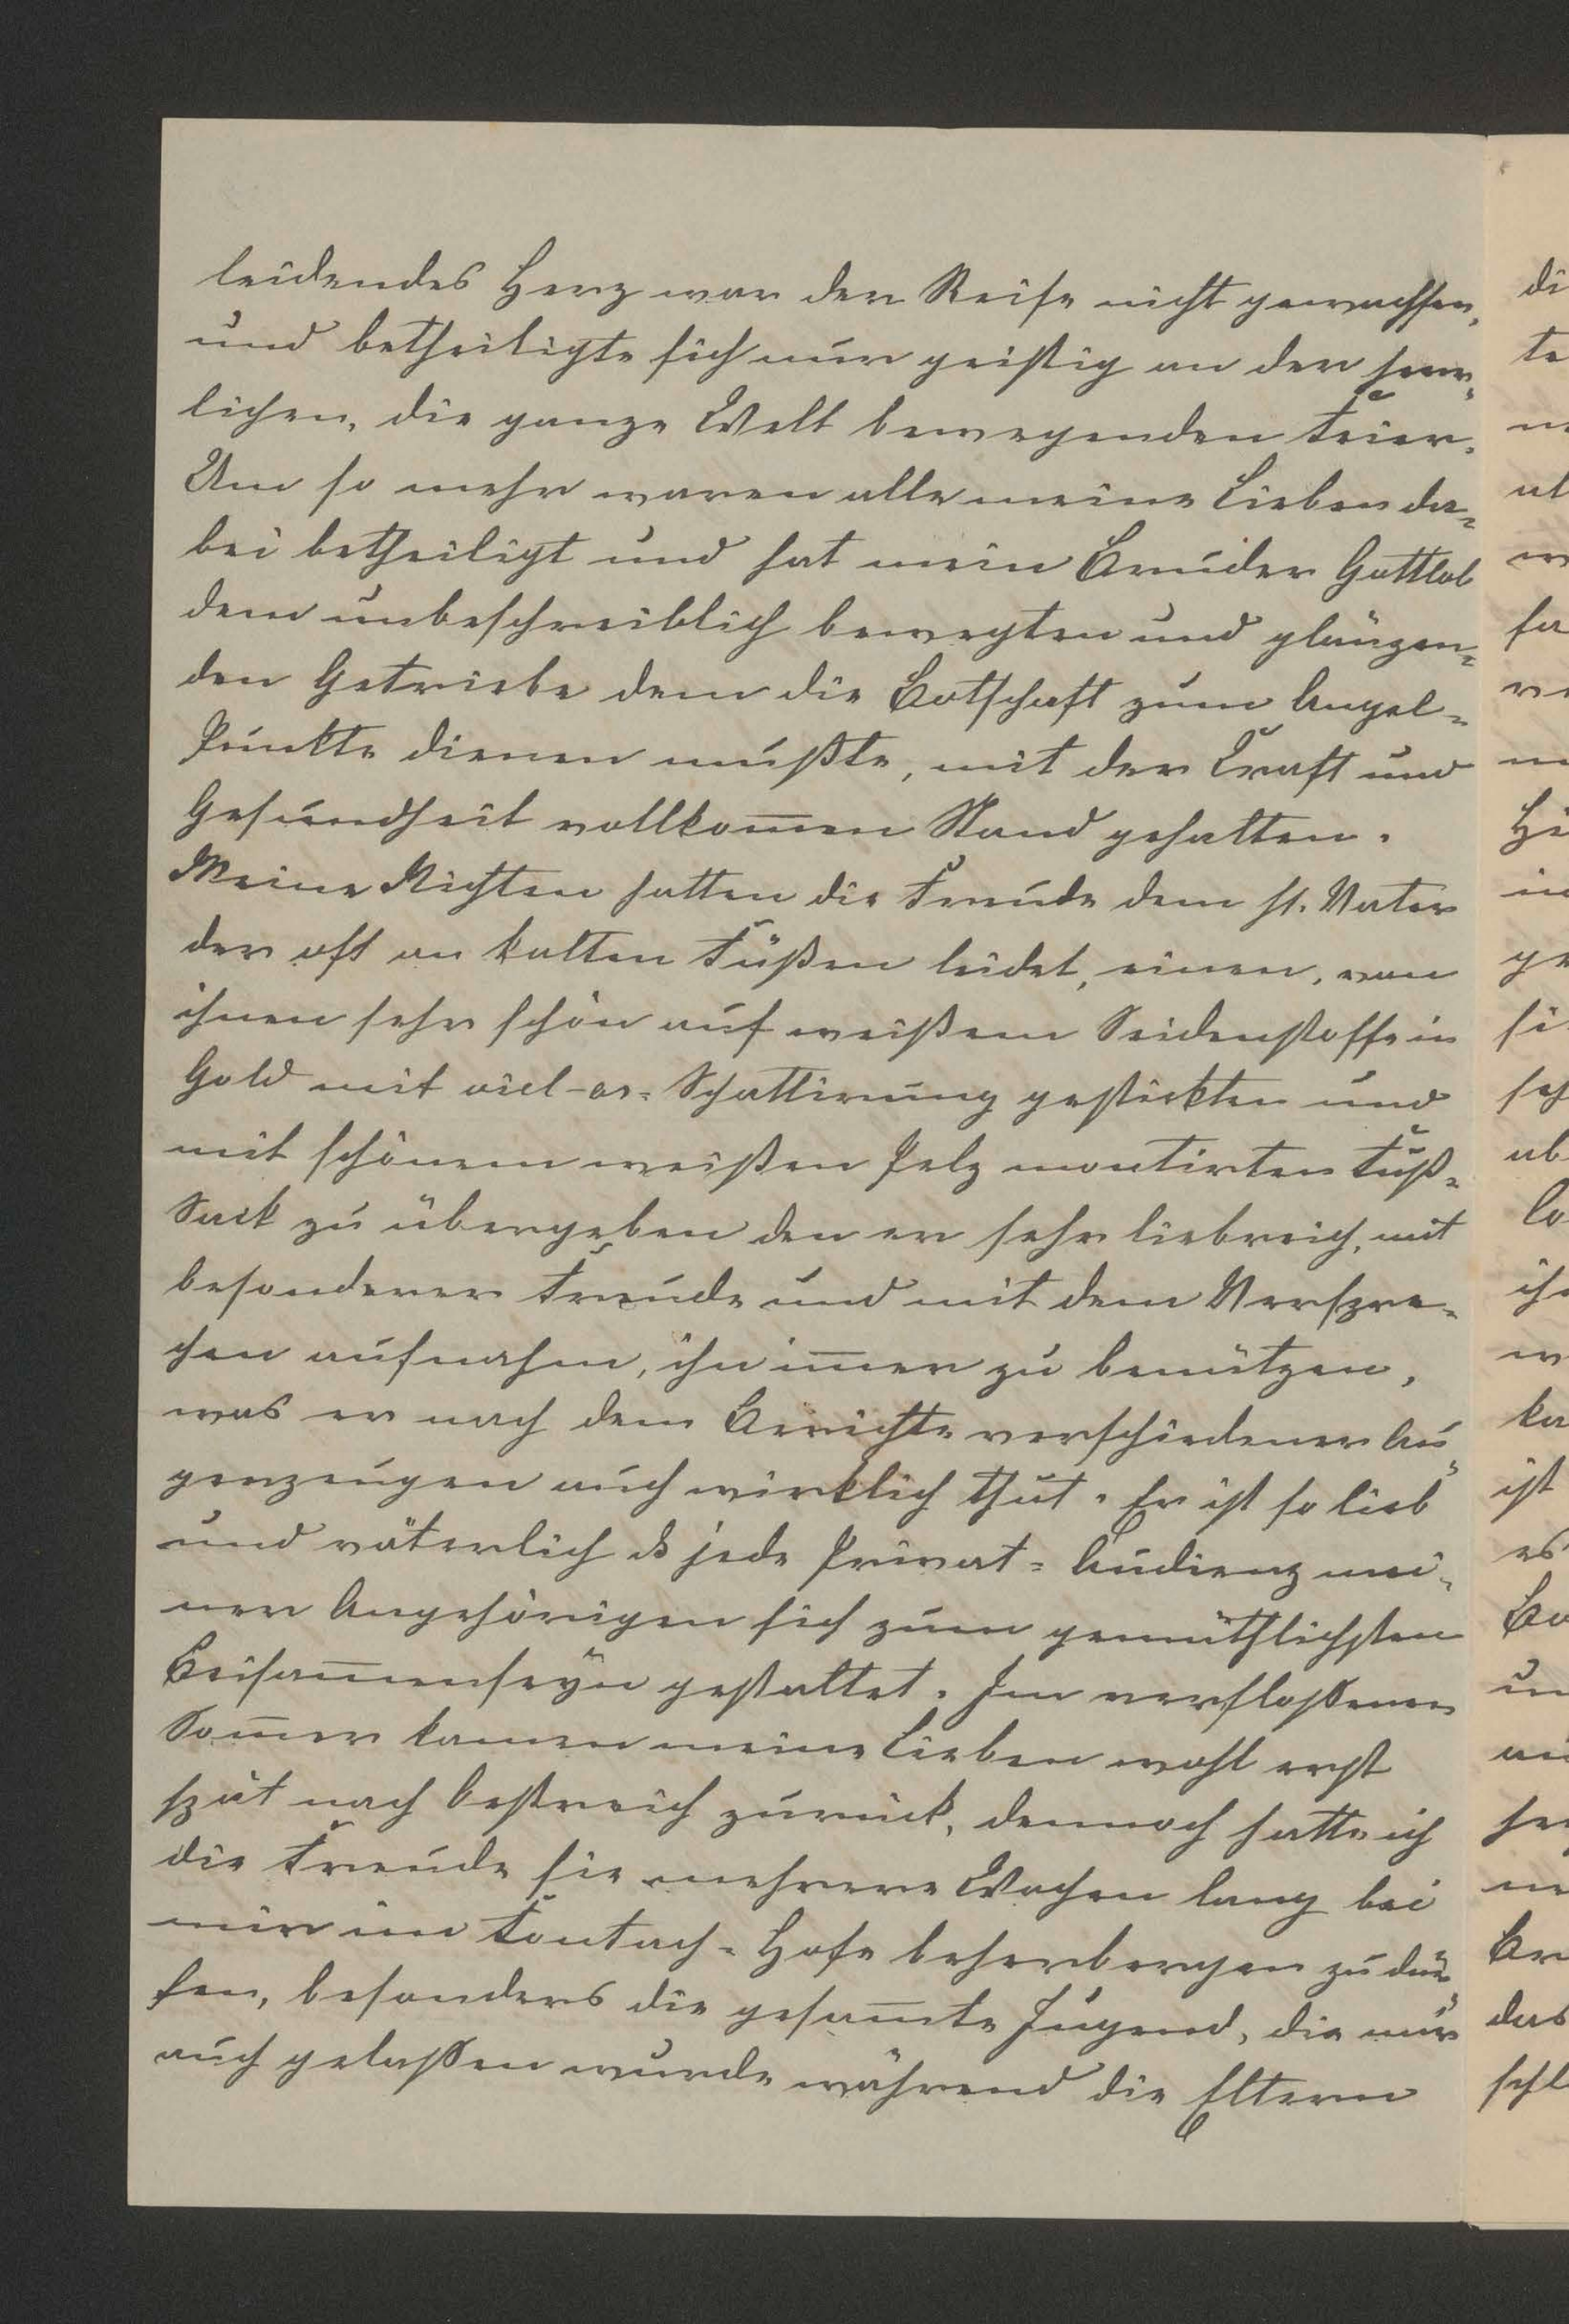 leidendes Herz war der Reise nicht gewachsen,
und betheiligte sich nur geistig an der herr-
lichen, die ganze Welt bewegenden Feier.
Um so mehr waren alle meine Lieben da-
bei betheiligt und hat mein Bruder Gottlob
dem unbeschreiblich bewegten und glänzen-
den Getriebe dem die Botschaft zum Angel-
Punkte dienen mußte, mit der Kraft und
Gesundheit vollkom̅en Stand gehalten.
Meine Nichten hatten die Freude dem hl. Vater
der oft an kalten Füßen leidet, einen, von
ihnen sehr schön auf weißem Seidenstoffe in
Gold mit viel-or-Schattirung gestickten und
mit schönem weißen Pelz montirten Fuß-
Sack zu übergeben den er sehr liebreich, mit
besonderer Freude und mit dem Verspre-
chen aufnahm, ihn im̅er zu benützen,
was er nach dem Berichte verschiedener Au-
genzeugen auch wirklich thut. Er ist so lieb
und väterlich ds jede Privat-Audienz mei-
ner Angehörigen sich zum gemüthlichsten
Beisam̅enseyn gestaltet. Im verfloßenen
Som̅er kamen meine Lieben wohl erst
spät nach Oestreich zurück, dennoch hatte ich
die Freude sie mehrere Wochen lang bei
mir im Hofe beherbergen zu dür-
fen, besonders die gesam̅te Jugend, die mir
auch gelaßen wurde während die Eltern
di
te